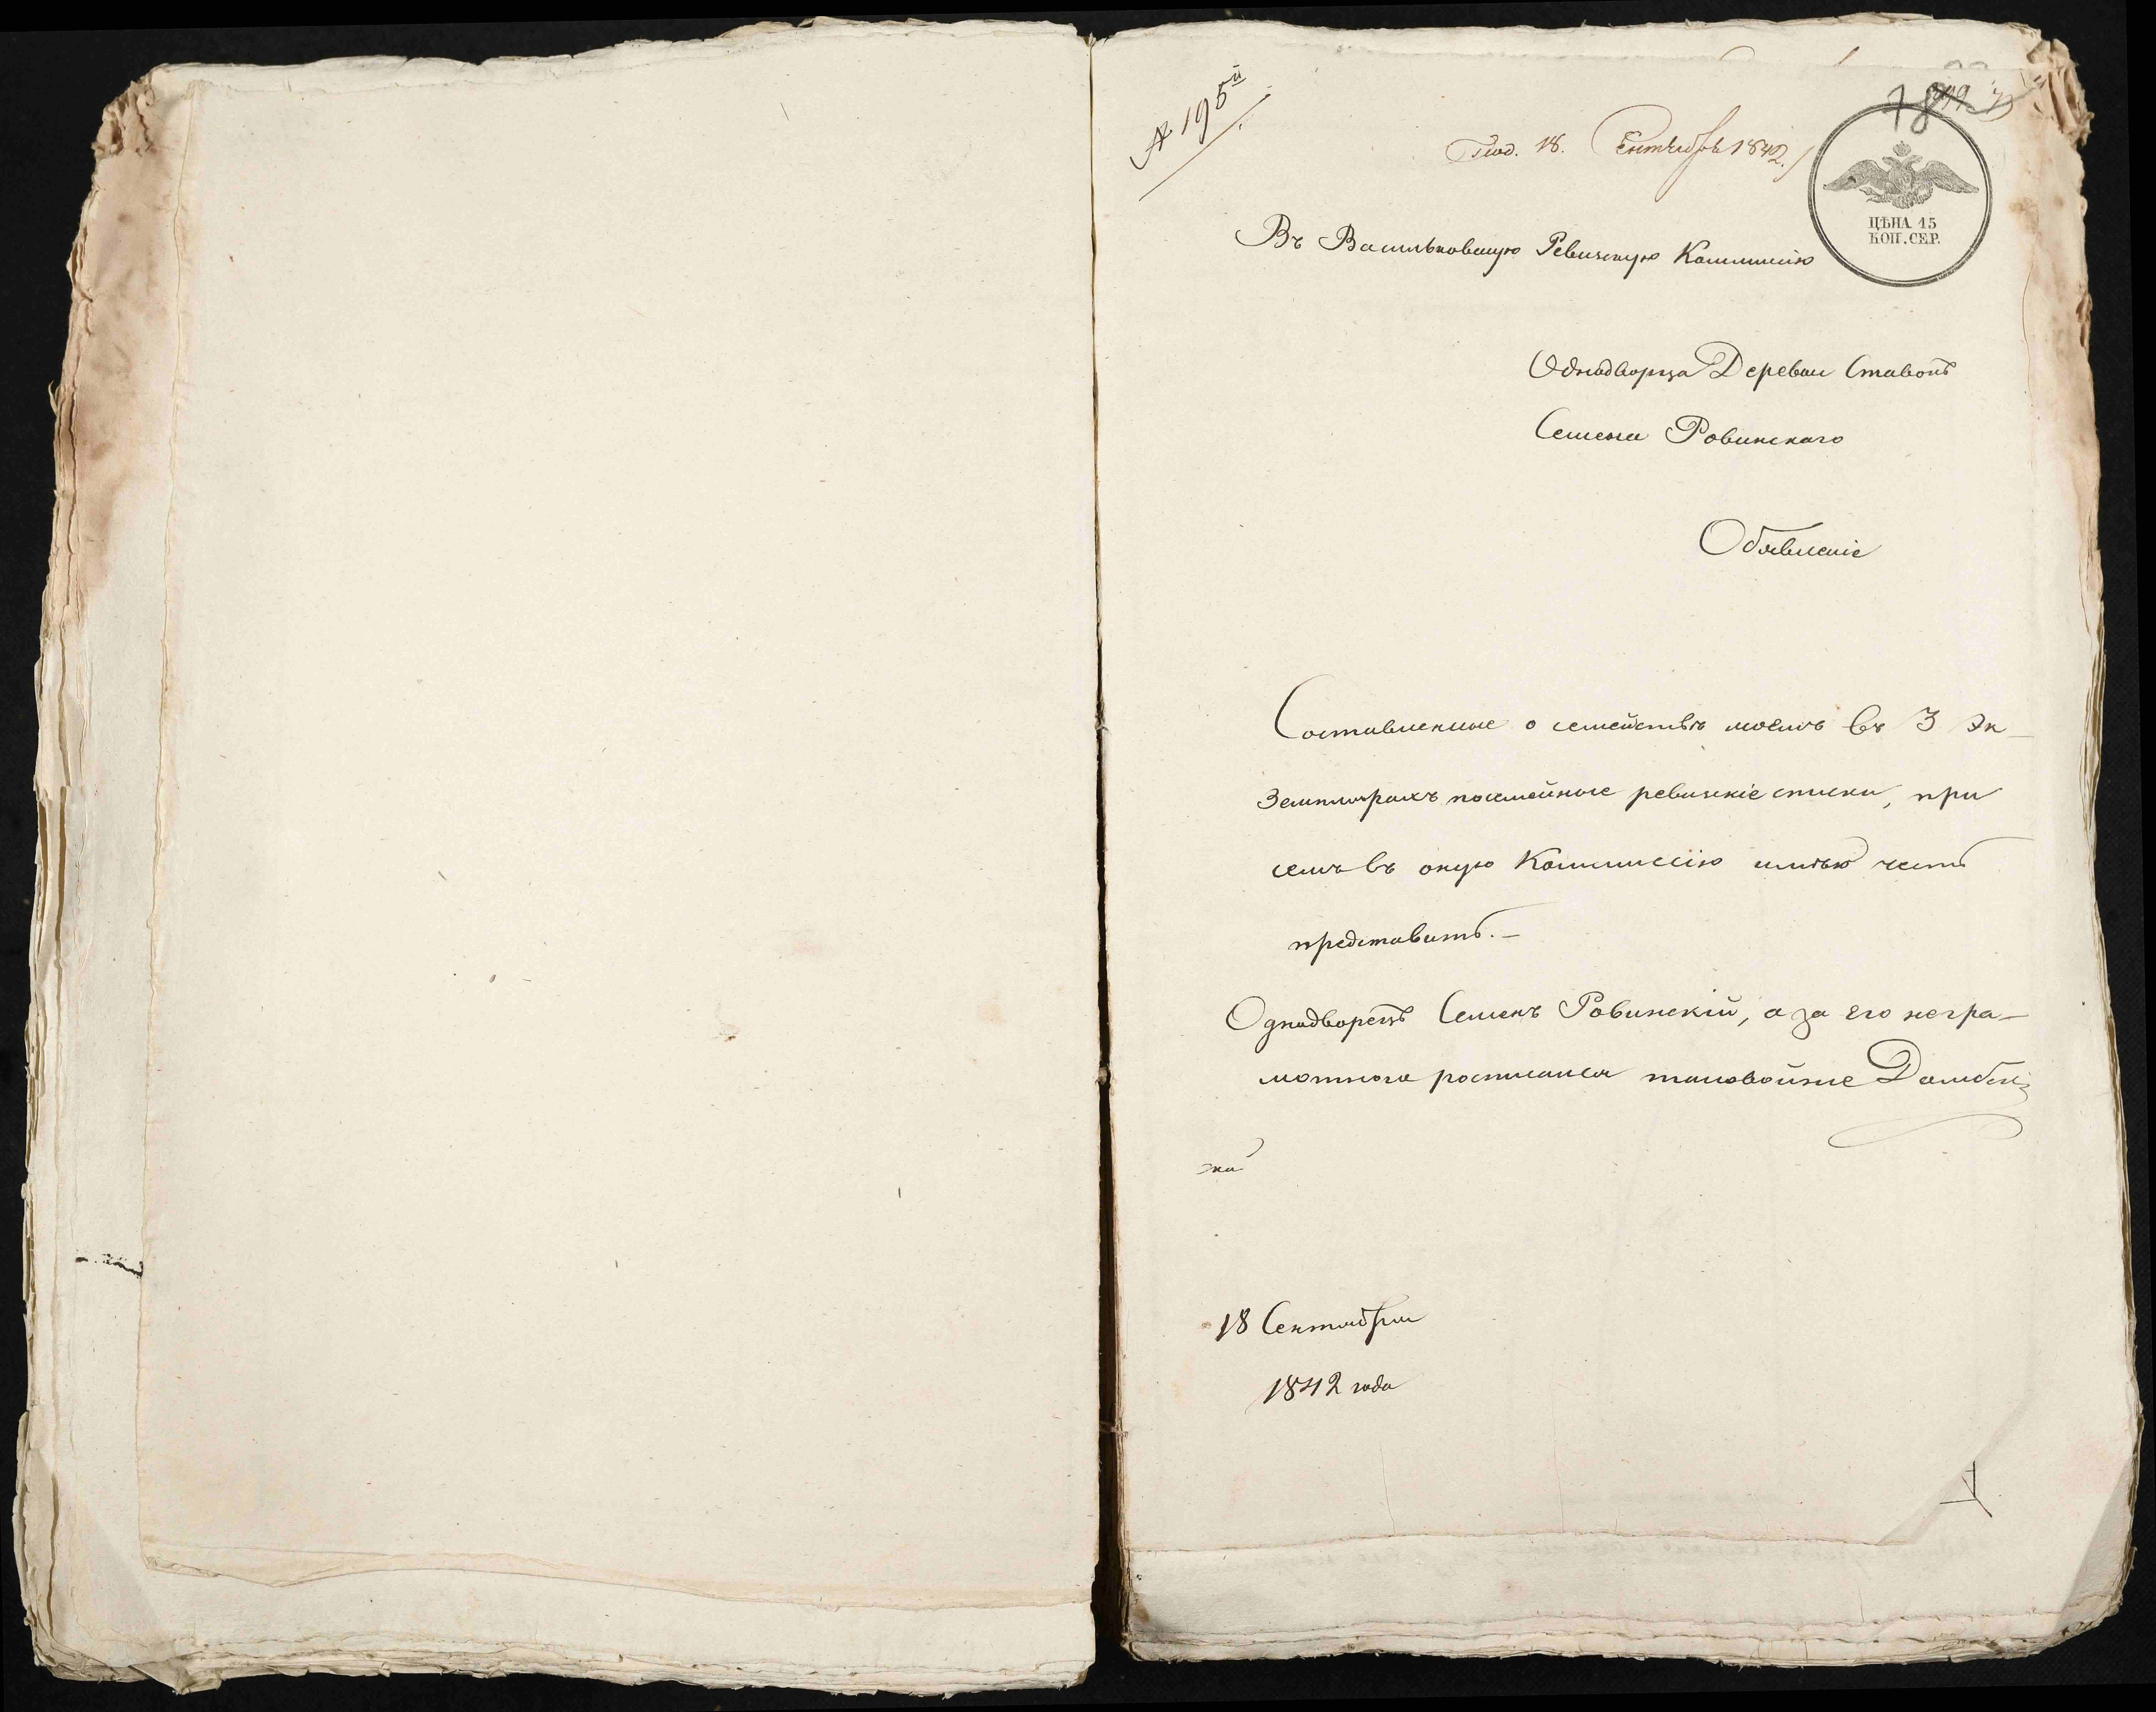 № 195й
Под. 18. Сентября 1842.
ЦѢНА 15
КОП. СЕР.
Въ Васильковскую Ревизскую Коммисію
Однодворца Деревни Ставокъ
Семена Ровинскаго
Обявленіе
Составленные о семействѣ моемъ въ 3 эк-
земплярахъ посемейные ревизскіе списки, при
семъ въ оную Коммиссію имѣю честь
представить.-
Однодворецъ Семенъ Ровинскій, а за его негра-
мотнаго росписался таковойже Домбск
18 Сентября
1842 года